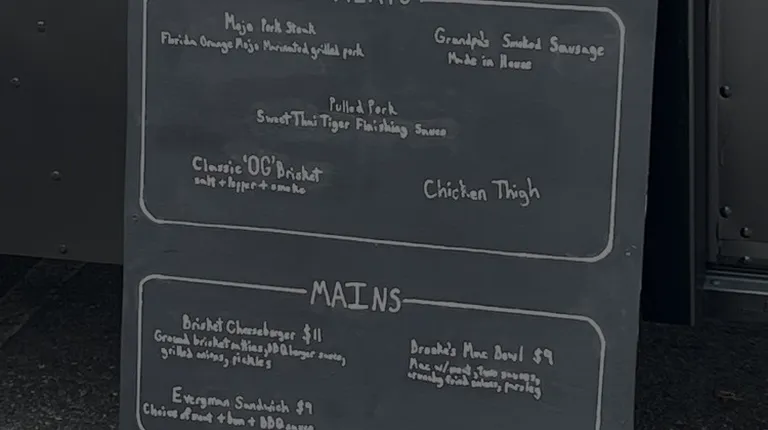 MEATS
Mojo Pork Steak
Florida Orange Mojo Marinated grilled pork
Grandpa's Smoked Sausage
Made in House
Pulled Pork
Sweet Thai Tiger Finishing Sauce
Classic 'OG' Brisket
salt + pepper + smoke
Chicken Thigh
MAINS
Brisket Cheeseburger $11
Ground brisket patties, BBQ burger sauce,
grilled onions, pickles
Brooke's Mac Bowl $9
Mac w/ meat, two sauces,
crunchy fried onions, parsley
Everyman Sandwich $9
Choice of meat + bun + BBQ sauce